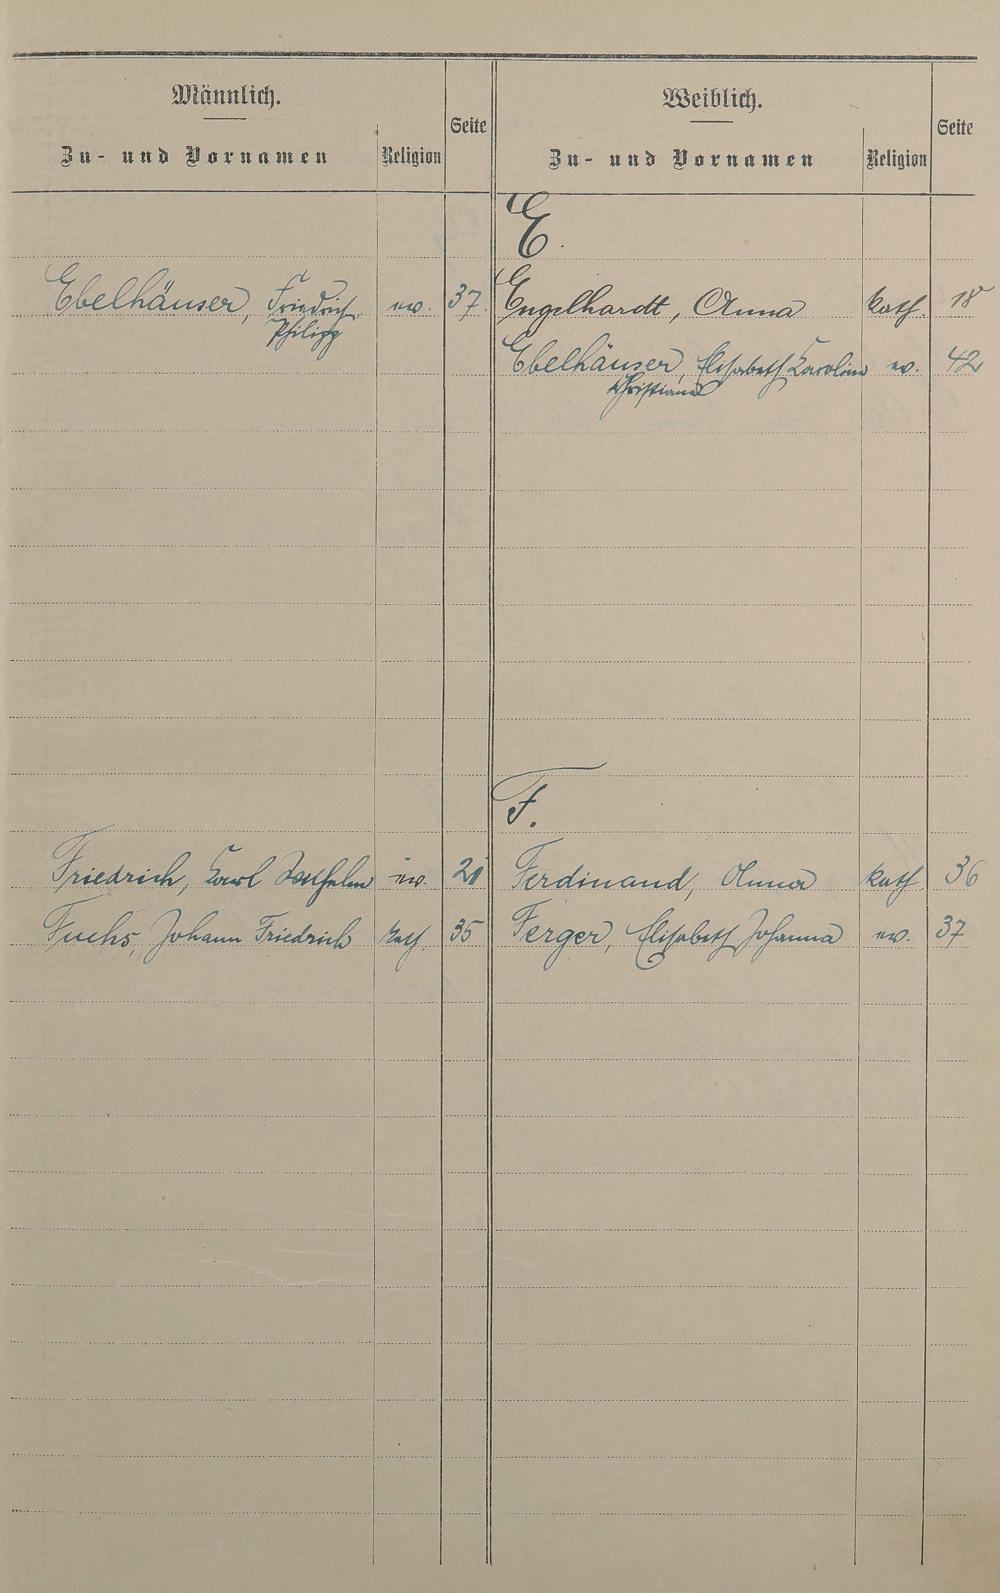 Männlich. Seite Weiblich. Seite
Zu- und Vornamen Religion Zu- und Vornamen Religion
E.
Ebelhäuser, Friedrich ev. 37 Engelhardt, Anna kath. 18
Philipp
Ebelhäuser, Elisabeth Karoline ev. 42
Christiane
F.
Friedrich, Karl Wilhelm ev. 21 Ferdinand, Anna kath. 36
Fuchs, Johann Friedrich kath. 35 Ferger, Elisabeth Johanna ev. 37